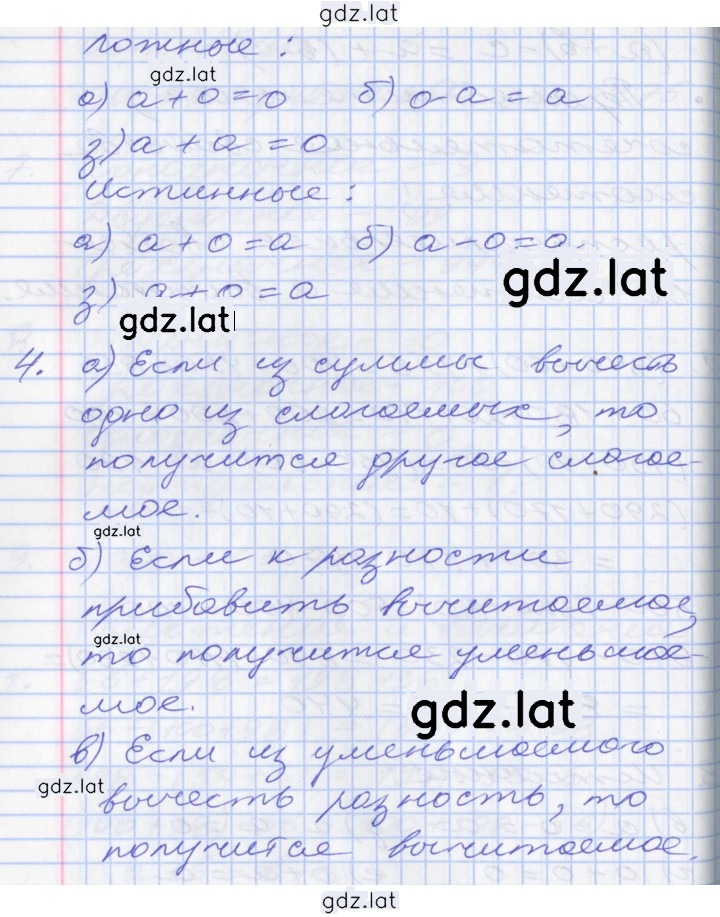 gdz.lat
ложные:
gdz.lat
а) а + о = о б) о - а = а
з) а + а = о
Истинные:
а) а + о = а б) а - о = а.
gdz.lat
з) а + о = а
gdz.lat
4. а) Если из суммы вычесть
одно из слагаемых, то
получится другое слагае-
мое.
gdz.lat
б) Если к разности
прибавить вычитаемое,
gdz.lat
то получится уменьшае-
мое.
gdz.lat
в) Если из уменьшаемого
gdz.lat
вычесть разность, то
получится вычитаемое.
gdz.lat